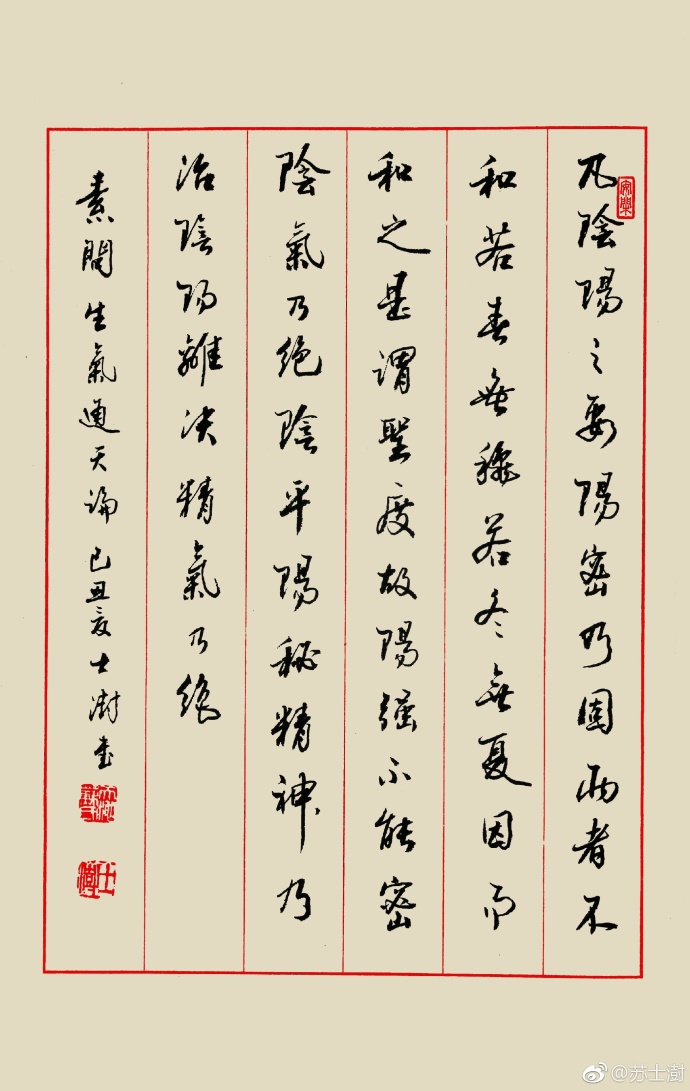 凡陰陽之要陽密乃固兩者不
和若春無穐若冬無夏因而
和之是謂聖度故陽强不能密
陰氣乃絶陰平陽秘精神乃
治陰陽離决精氣乃絶
素問生氣通天論 己丑夏士澍書
@苏士澍